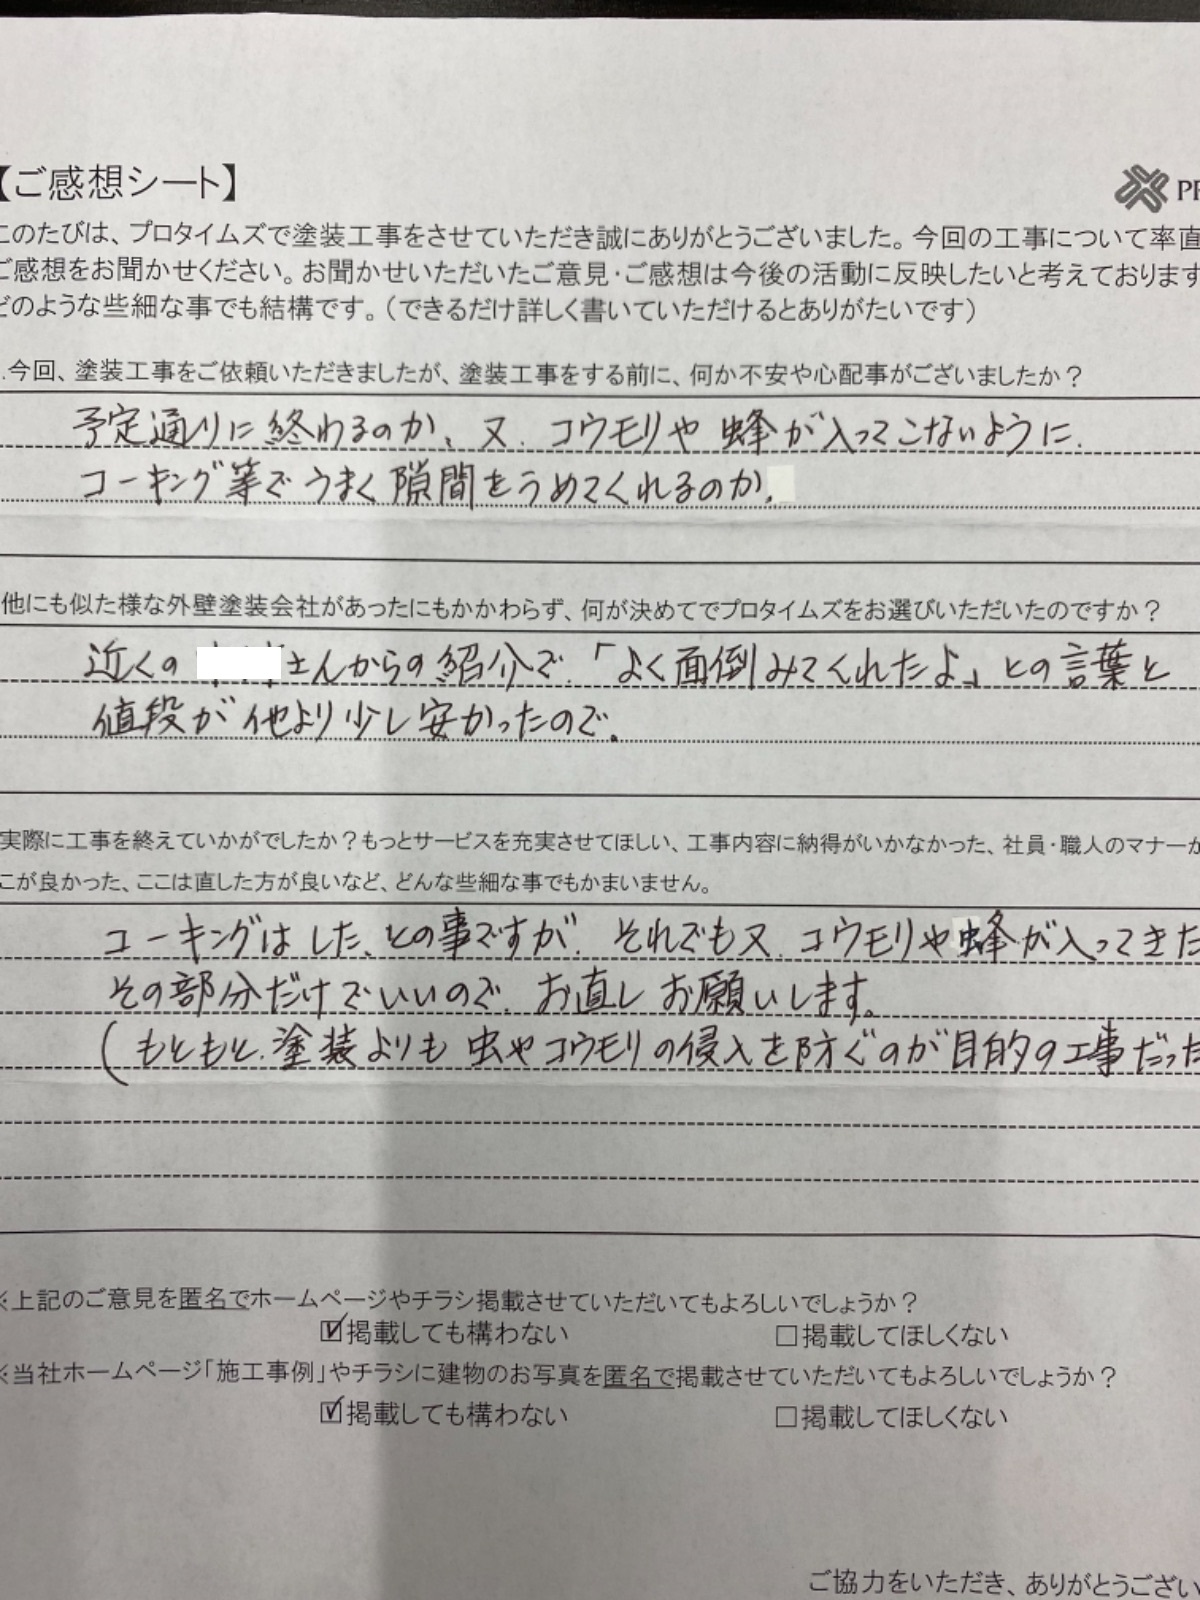 【ご感想シート】
PR
このたびは、プロタイムズで塗装工事をさせていただき誠にありがとうございました。今回の工事について率直
ご感想をお聞かせください。お聞かせいただいたご意見・ご感想は今後の活動に反映したいと考えております
どのような些細な事でも結構です。（できるだけ詳しく書いていただけるとありがたいです）
.今回、塗装工事をご依頼いただきましたが、塗装工事をする前に、何か不安や心配事がございましたか？
予定通りに終わるのか、又、コウモリや蜂が入ってこないように、
コーキング等でうまく隙間をうめてくれるのか、
他にも似た様な外壁塗装会社があったにもかかわらず、何が決めてでプロタイムズをお選びいただいたのですか？
近くの さんからの紹介で、「よく面倒みてくれたよ」との言葉と
値段が他より少し安かったので。
実際に工事を終えていかがでしたか？もっとサービスを充実させてほしい、工事内容に納得がいかなかった、社員・職人のマナーが
こが良かった、ここは直した方が良いなど、どんな些細な事でもかまいません。
コーキングはした、との事ですが、それでも又、コウモリや蜂が入ってきた
その部分だけでいいので、お直しお願いします。
（もともと、塗装よりも虫やコウモリの侵入を防ぐのが目的の工事だった
※上記のご意見を匿名でホームページやチラシ掲載させていただいてもよろしいでしょうか？
☑掲載しても構わない □掲載してほしくない
※当社ホームページ「施工事例」やチラシに建物のお写真を匿名で掲載させていただいてもよろしいでしょうか？
☑掲載しても構わない □掲載してほしくない
ご協力をいただき、ありがとうござい